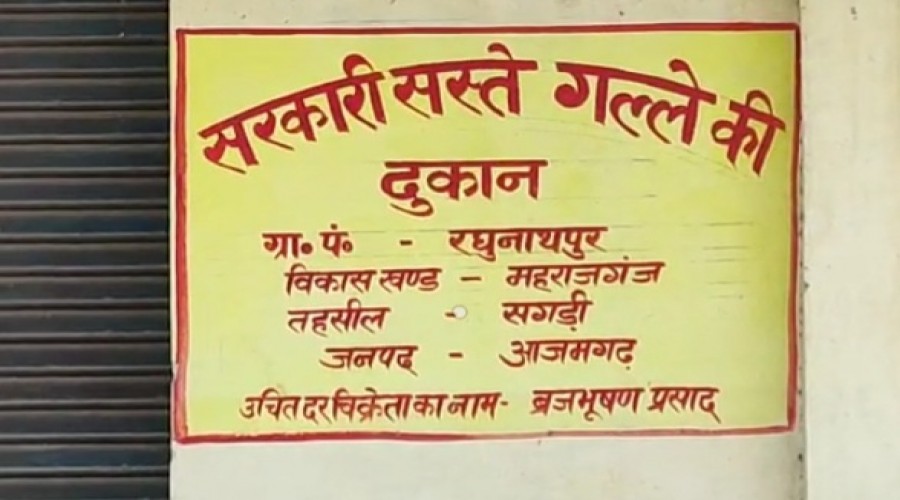 सरकारी सस्ते गल्ले की
दुकान
ग्रा॰ पं॰ - रघुनाथपुर
विकास खण्ड - महराजगंज
तहसील - सगड़ी
जनपद - आजमगढ़
उचित दर विक्रेता का नाम - ब्रजभूषण प्रसाद